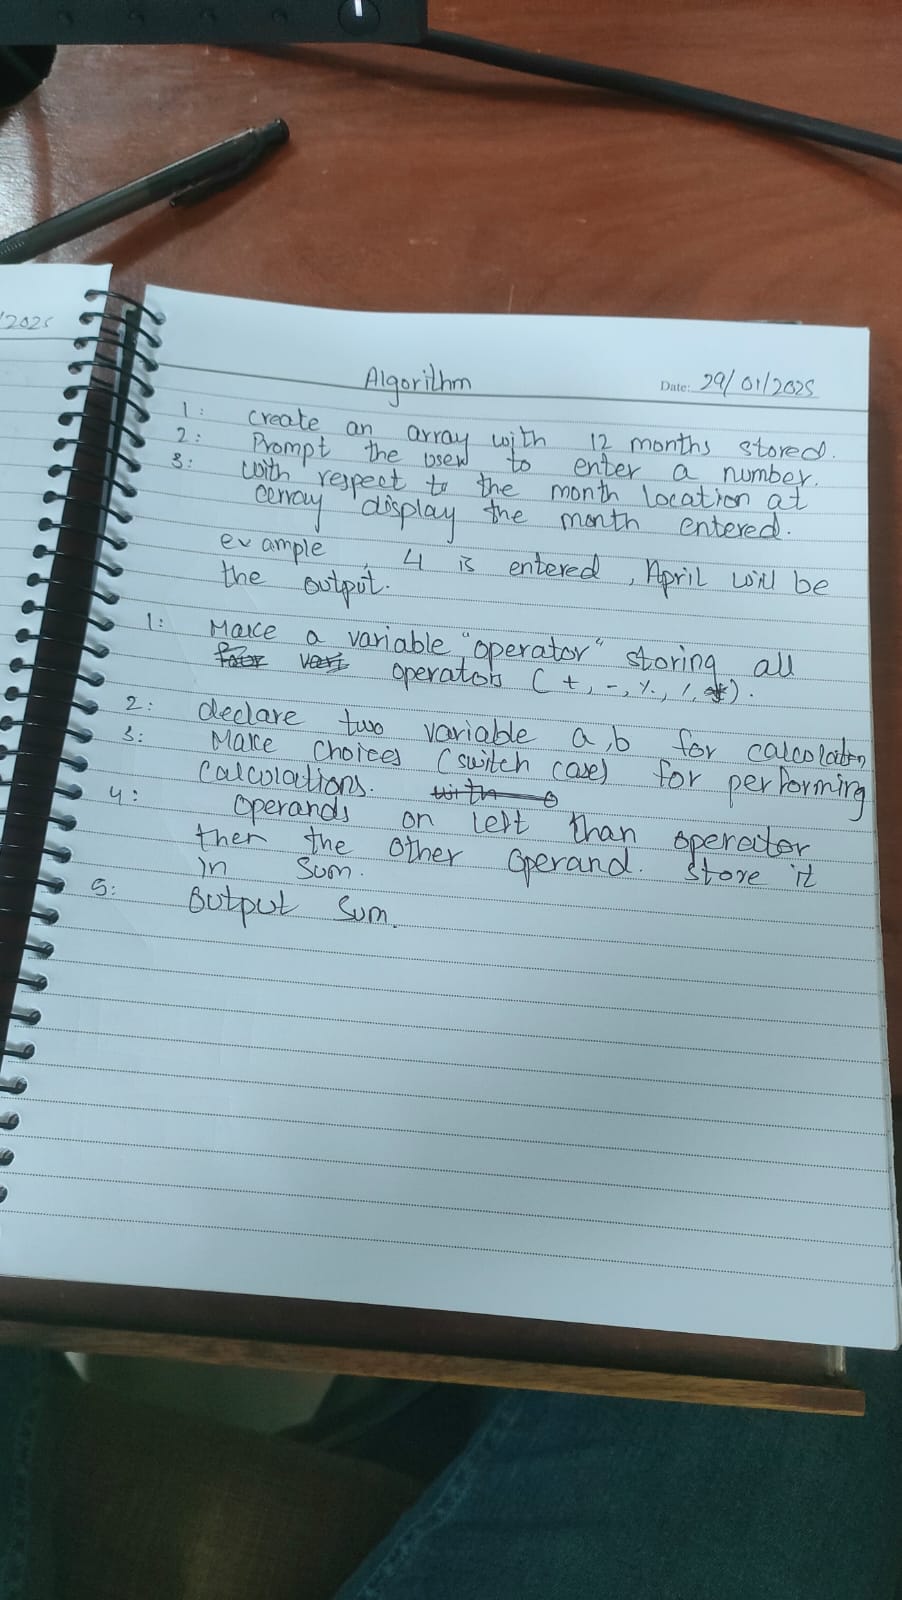 /2025
Algorithm
Date: 29/01/2025
1: create an array with 12 months stored.
2: Prompt the user to enter a number.
3: with respect to the month location at
array display the month entered.
example, 4 is entered, April will be
the output.
1: Make a variable "operator" storing all
operators (+, -, %, /, *).
2: declare two variable a,b for calculation
3: Make choices (switch case) for performing
calculations.
4: operands on left than operator
then the other operand. store it
in sum.
5: Output sum.